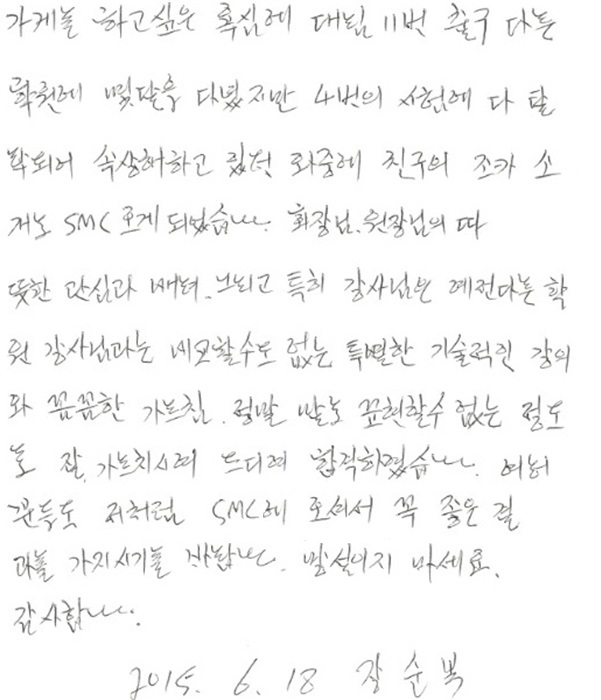 가게를 하고싶은 혹심에 대림 11번 출구 다른
학원에 몇달을 다녔지만 4번의 시험에 다 탈
락되어 속상해하고 있던 와중에 친구의 조카 소
개로 SMC 오게 되었습니다. 회장님.원장님의 따
뜻한 관심과 배려.느끼고 특히 강사님은 예전다른학
원 강사님과는 비교할수도 없는 특별한 기술적인 강의
와 꼼꼼한 가르침. 정말 말로 표현할수 없는 정도
로 잘 가르치시여 드디여 합격하였습니다. 여러
분들도 저처럼 SMC에 오셔서 꼭 좋은 결
과를 가지시기를 바랍니다. 망설이지 마세요.
감사합니다.
2015. 6. 18 장순복